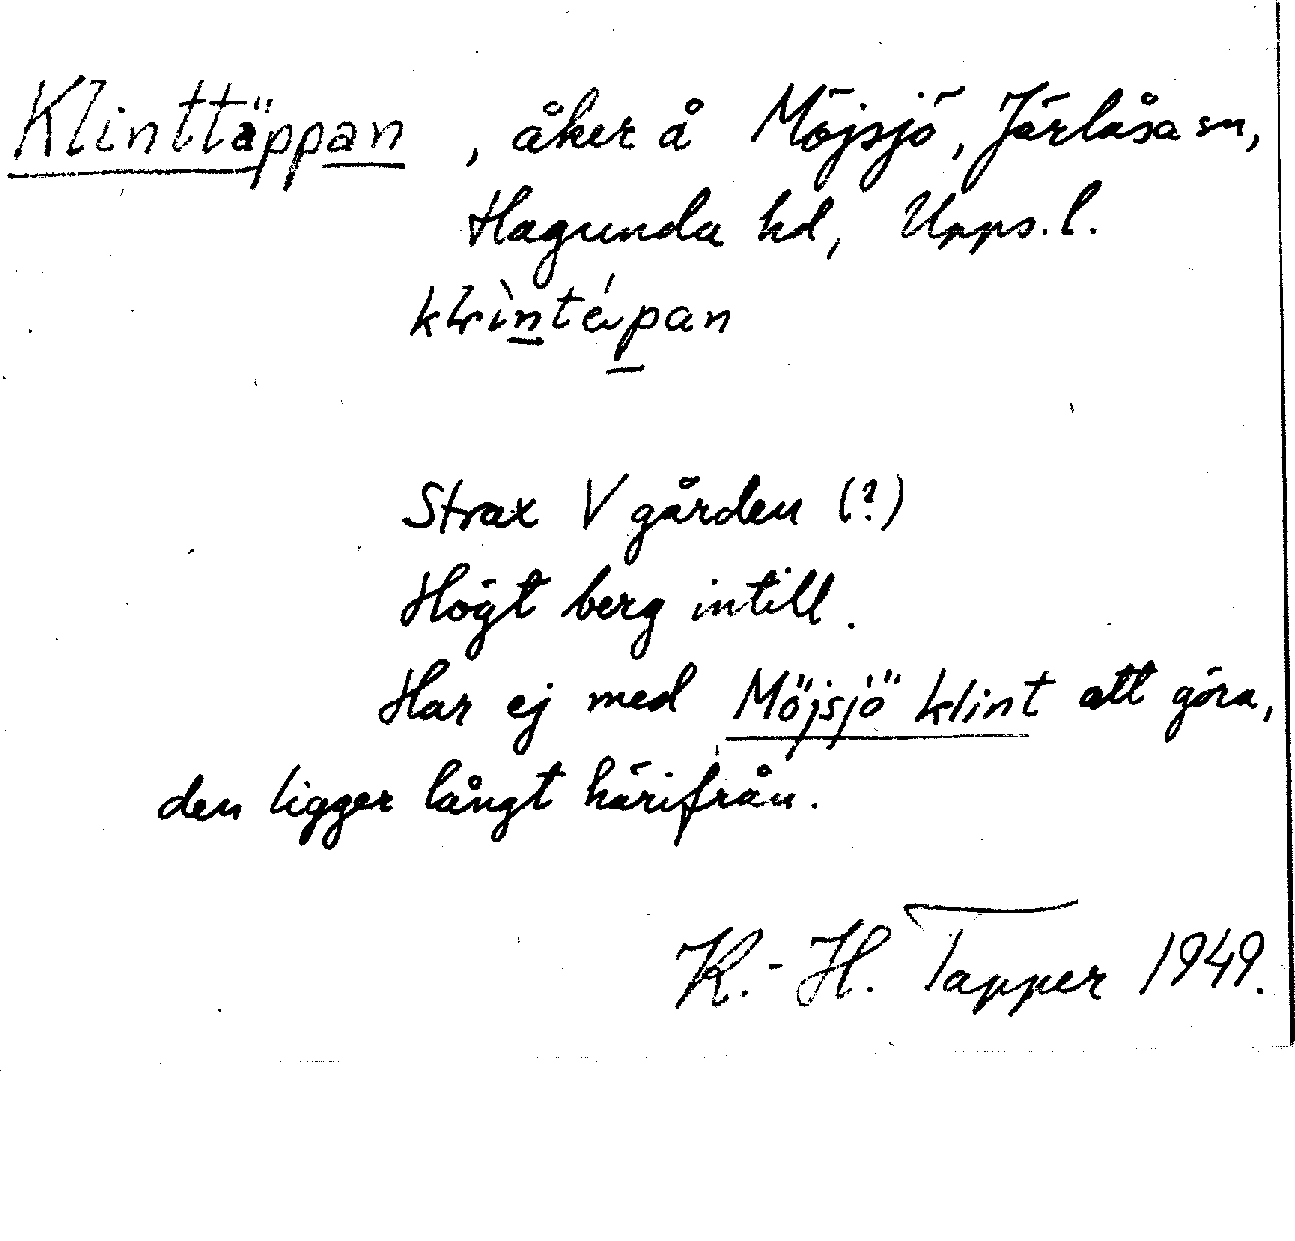 Klinttäppan, åker å Möjsjö, Järlåsa sn,
Hagunda hd, Upps. l.
Strax V gården (?)
Högt berg intill.
Har ej med Möjsjö klint att göra,
den ligger långt härifrån.
K.-H. Tapper 1949.